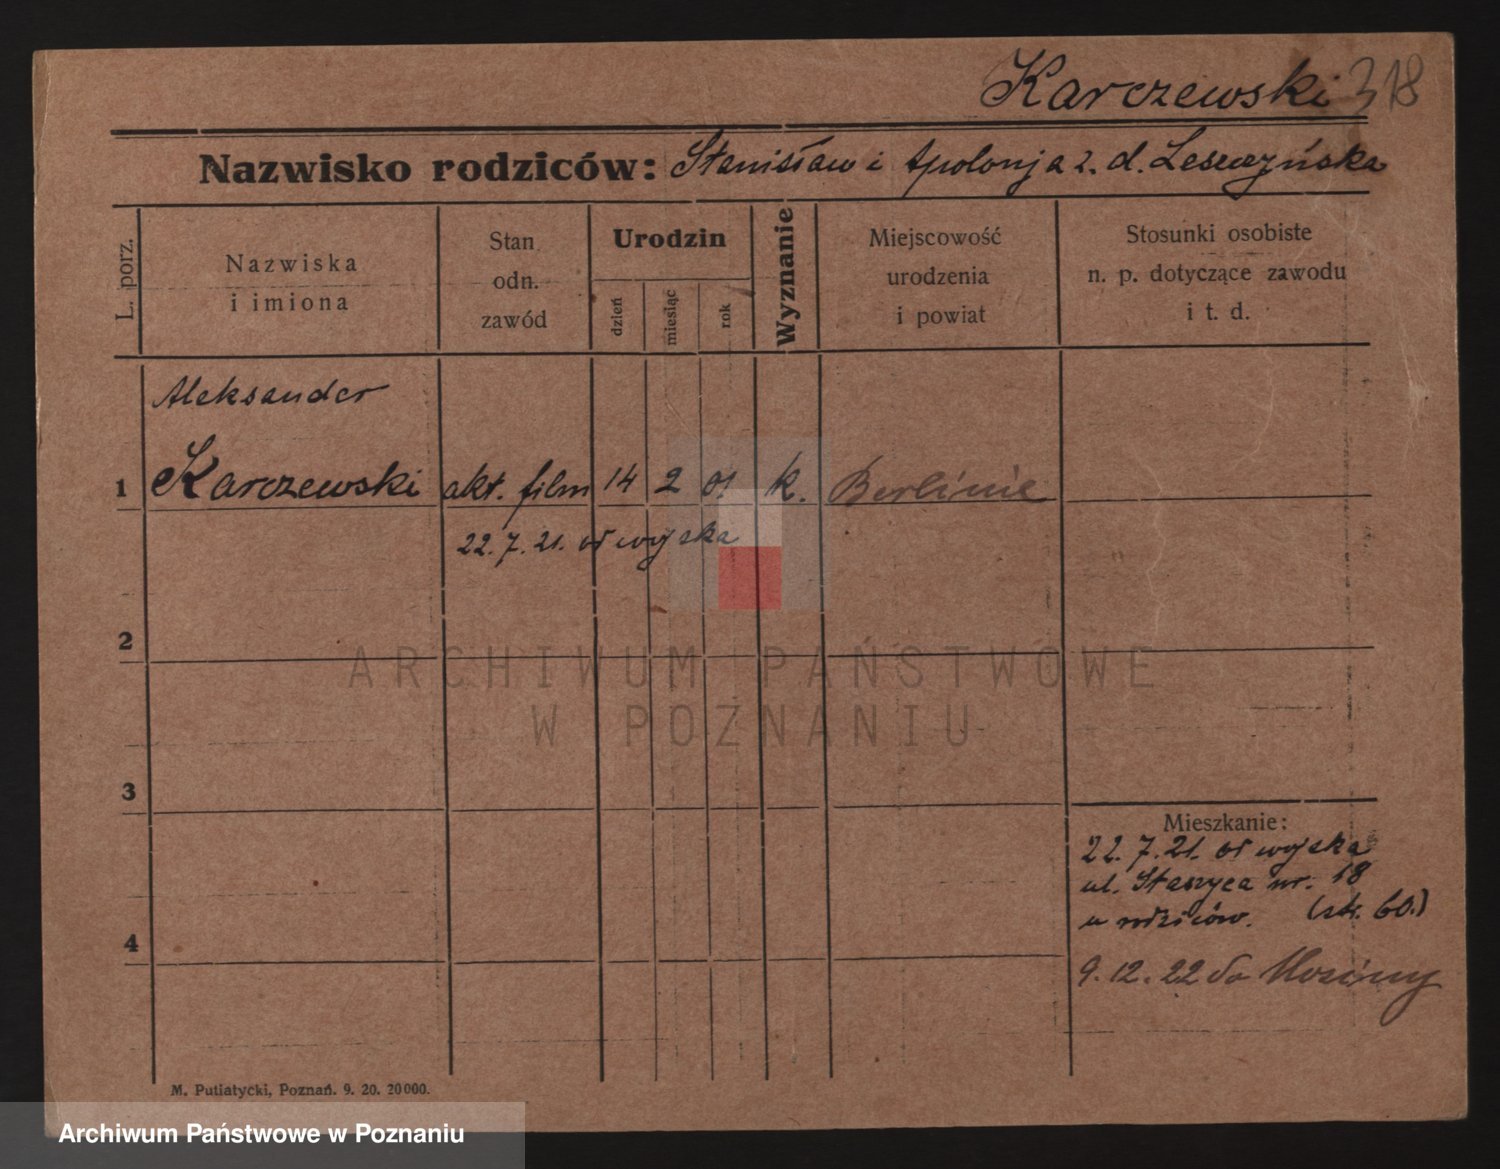 Karczewski 318
Nazwisko rodziców: Stanisław i Apolonja z. d. Leszczyńska
L. porz.
Nazwiska
i imiona
Stan
odn.
zawód
Urodzin
dzień
miesiąc
rok
Wyznanie
Miejscowość
urodzenia
i powiat
Stosunki osobiste
n. p. dotyczące zawodu
i t. d.
Aleksander
1 Karczewski akt. film 14 2 01 k. Berlinie
22. 7. 21. od wojska
2
3
4
Mieszkanie:
22. 7. 21. od wojska
ul. Staszyca nr. 18
u rodziców. (str. 60.)
9. 12. 22 do Mosiny
M. Putiatycki, Poznań. 9. 20. 20000.
ARCHIWUM PAŃSTWOWE
W POZNANIU
Archiwum Państwowe w Poznaniu